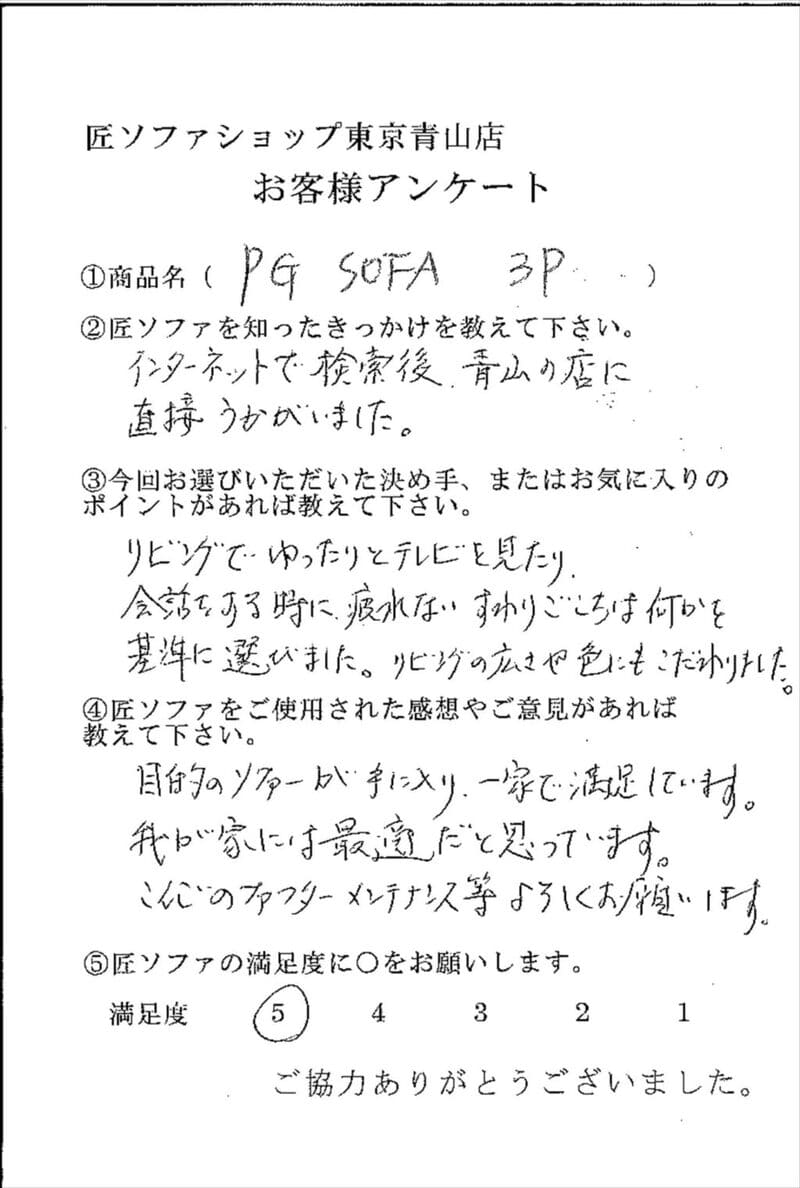 匠ソファショップ東京青山店
お客様アンケート
①商品名（ PG SOFA 3P ）
②匠ソファを知ったきっかけを教えて下さい。
インターネットで検索後、青山の店に
直接うかがいました。
③今回お選びいただいた決め手、またはお気に入りの
ポイントがあれば教えて下さい。
リビングでゆったりとテレビを見たり、
会話をする時に、疲れないすわりごこちは何かを
基準に選びました。リビングの広さや色にもこだわりました。
④匠ソファをご使用された感想やご意見があれば
教えて下さい。
目的のソファーが手に入り、一家で満足しています。
我が家には最適だと思っています。
こんごのアフターメンテナンス等よろしくお願いします。
⑤匠ソファの満足度に○をお願いします。
満足度 5 4 3 2 1
ご協力ありがとうございました。